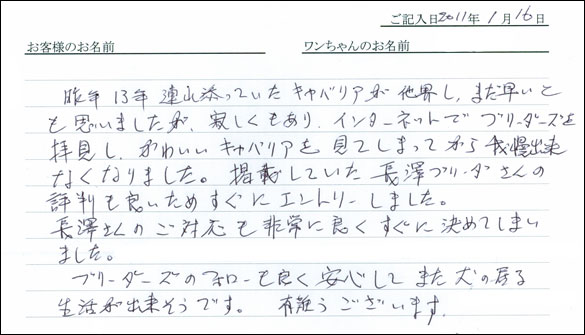 ご記入日2011年1月16日
お客様のお名前 ワンちゃんのお名前
昨年13年連れ添っていたキャバリアが他界し、まだ早いと
も思いましたが、寂しくもあり、インターネットでブリーダーズを
拝見し、かわいいキャバリアを見てしまってから我慢出来
なくなりました。掲載していた長澤ブリーダーさんの
評判も良いためすぐにエントリーしました。
長澤さんのご対応も非常に良くすぐに決めてしまい
ました。
ブリーダーズのフォローも良く安心してまた犬の居る
生活が出来そうです。有難うございます。